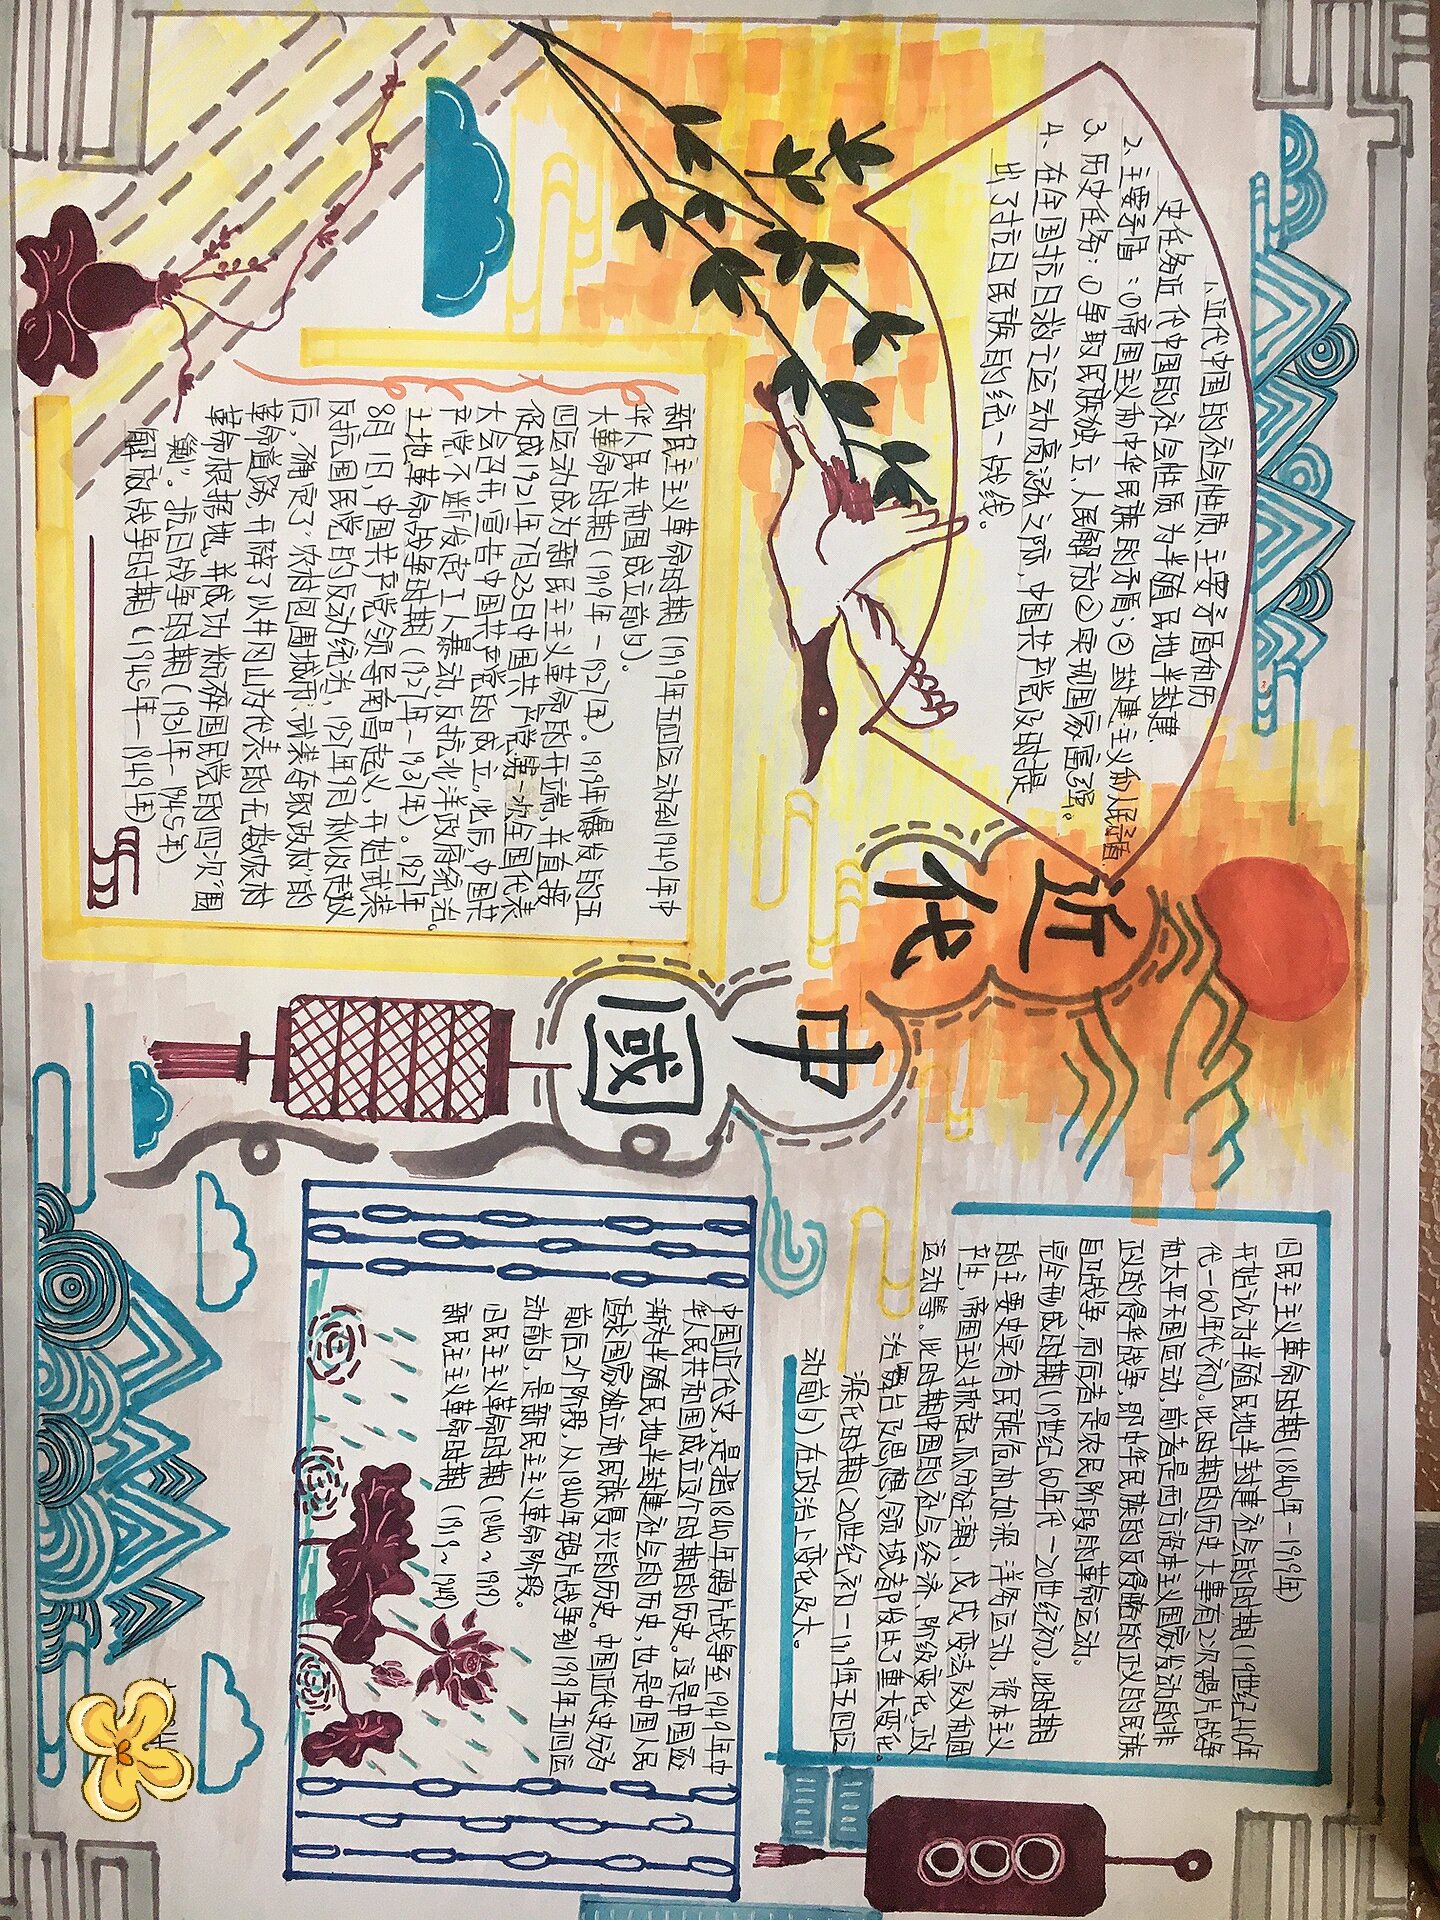 近代
中國
1、近代中国的社会性质、主要矛盾和历
史任务近代中国的社会性质为半殖民地半封建.
2、主要矛盾:①帝国主义和中华民族的矛盾;②封建主义和人民矛盾
3、历史任务:①争取民族独立,人民解放②实现国家富强。
4、在全国抗日救亡运动高涨之际,中国共产党及时提
出了抗日民族的统一战线。
新民主主义革命时期(1919年五四运动到1949年中
华人民共和国成立前夕)。
大革命时期(1919年-1927年)。1919年爆发的五
四运动成为新民主主义革命的开端,并直接
促成1921年7月23日中国共产党第一次全国代表
大会召开,宣告中国共产党的成立。此后中国共
产党不断发起工人暴动,反抗北洋政府统治。
土地革命战争时期(1927年-1937年)。1927年
8月1日,中国共产党领导南昌起义,开始武装
反抗国民党的反动统治,1927年9月秋收起义
后,确定了"农村包围城市,武装夺取政权"的
革命道路,开辟了以井冈山为代表的无数农村
革命根据地,并成功粉碎国民党的四次"围
剿"。抗日战争时期(1931年-1945年)
解放战争时期(1945年-1949年)
旧民主主义革命时期(1840年-1919年)
开始沦为半殖民地半封建社会的时期(19世纪40年
代-60年代初)。此时期的历史大事有2次鸦片战争
和太平天国运动,前者是西方资本主义国家发动的非
正义的侵华战争,即中华民族的反侵略的正义的民族
自卫战争,而后者是农民阶段的革命运动。
完全形成时期(19世纪60年代-20世纪初)。此时期
的主要史实有民族危机加深,洋务运动,资本主义
产生,帝国主义掀起瓜分狂潮,戊戌变法及义和团
运动等。此时期中国的社会经济,阶级变化,政
治舞台及思想领域都发生了重大变化。
深化时期(20世纪初-1919年五四运
动前夕)在政治上变化及大。
中国近代史,是指1840年鸦片战争至1949年中
华人民共和国成立这个时期的历史。这是中国逐
渐为半殖民地半封建社会的历史,也是中国人民
追求国家独立和民族复兴的历史。中国近代史分为
前后2个阶段,从1840年鸦片战争到1919年五四运
动前夕,是新民主主义革命阶段。
旧民主主义革命时期(1840~1919)
新民主主义革命时期(1919~1949)